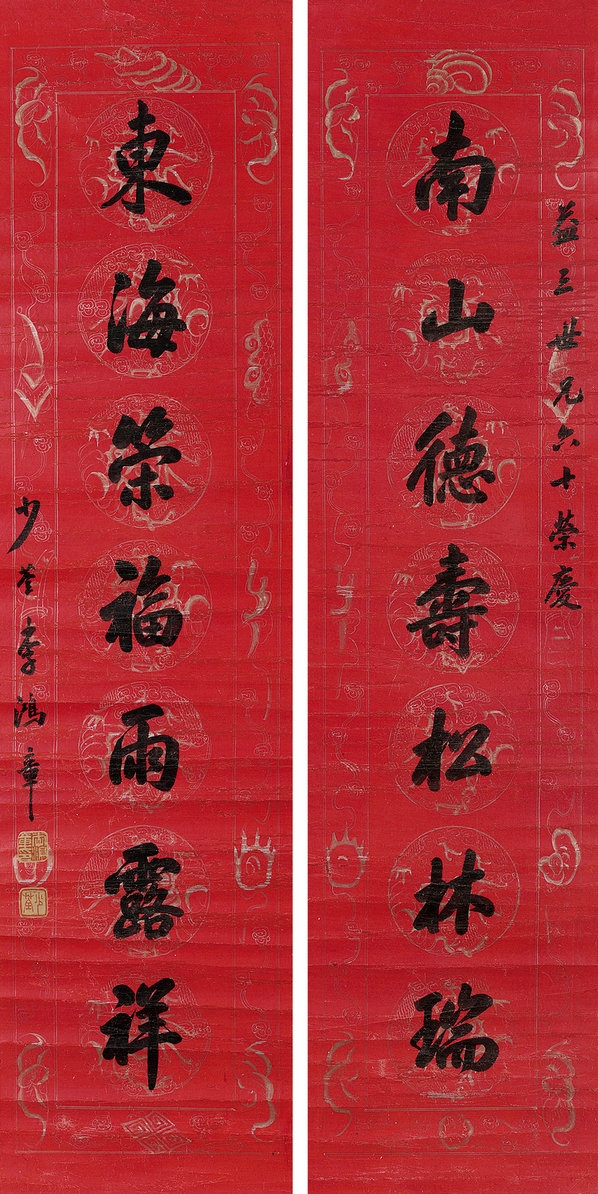 益三世兄六十榮慶
南山德壽松林瑞
東海榮福雨露祥
少荃李鴻章